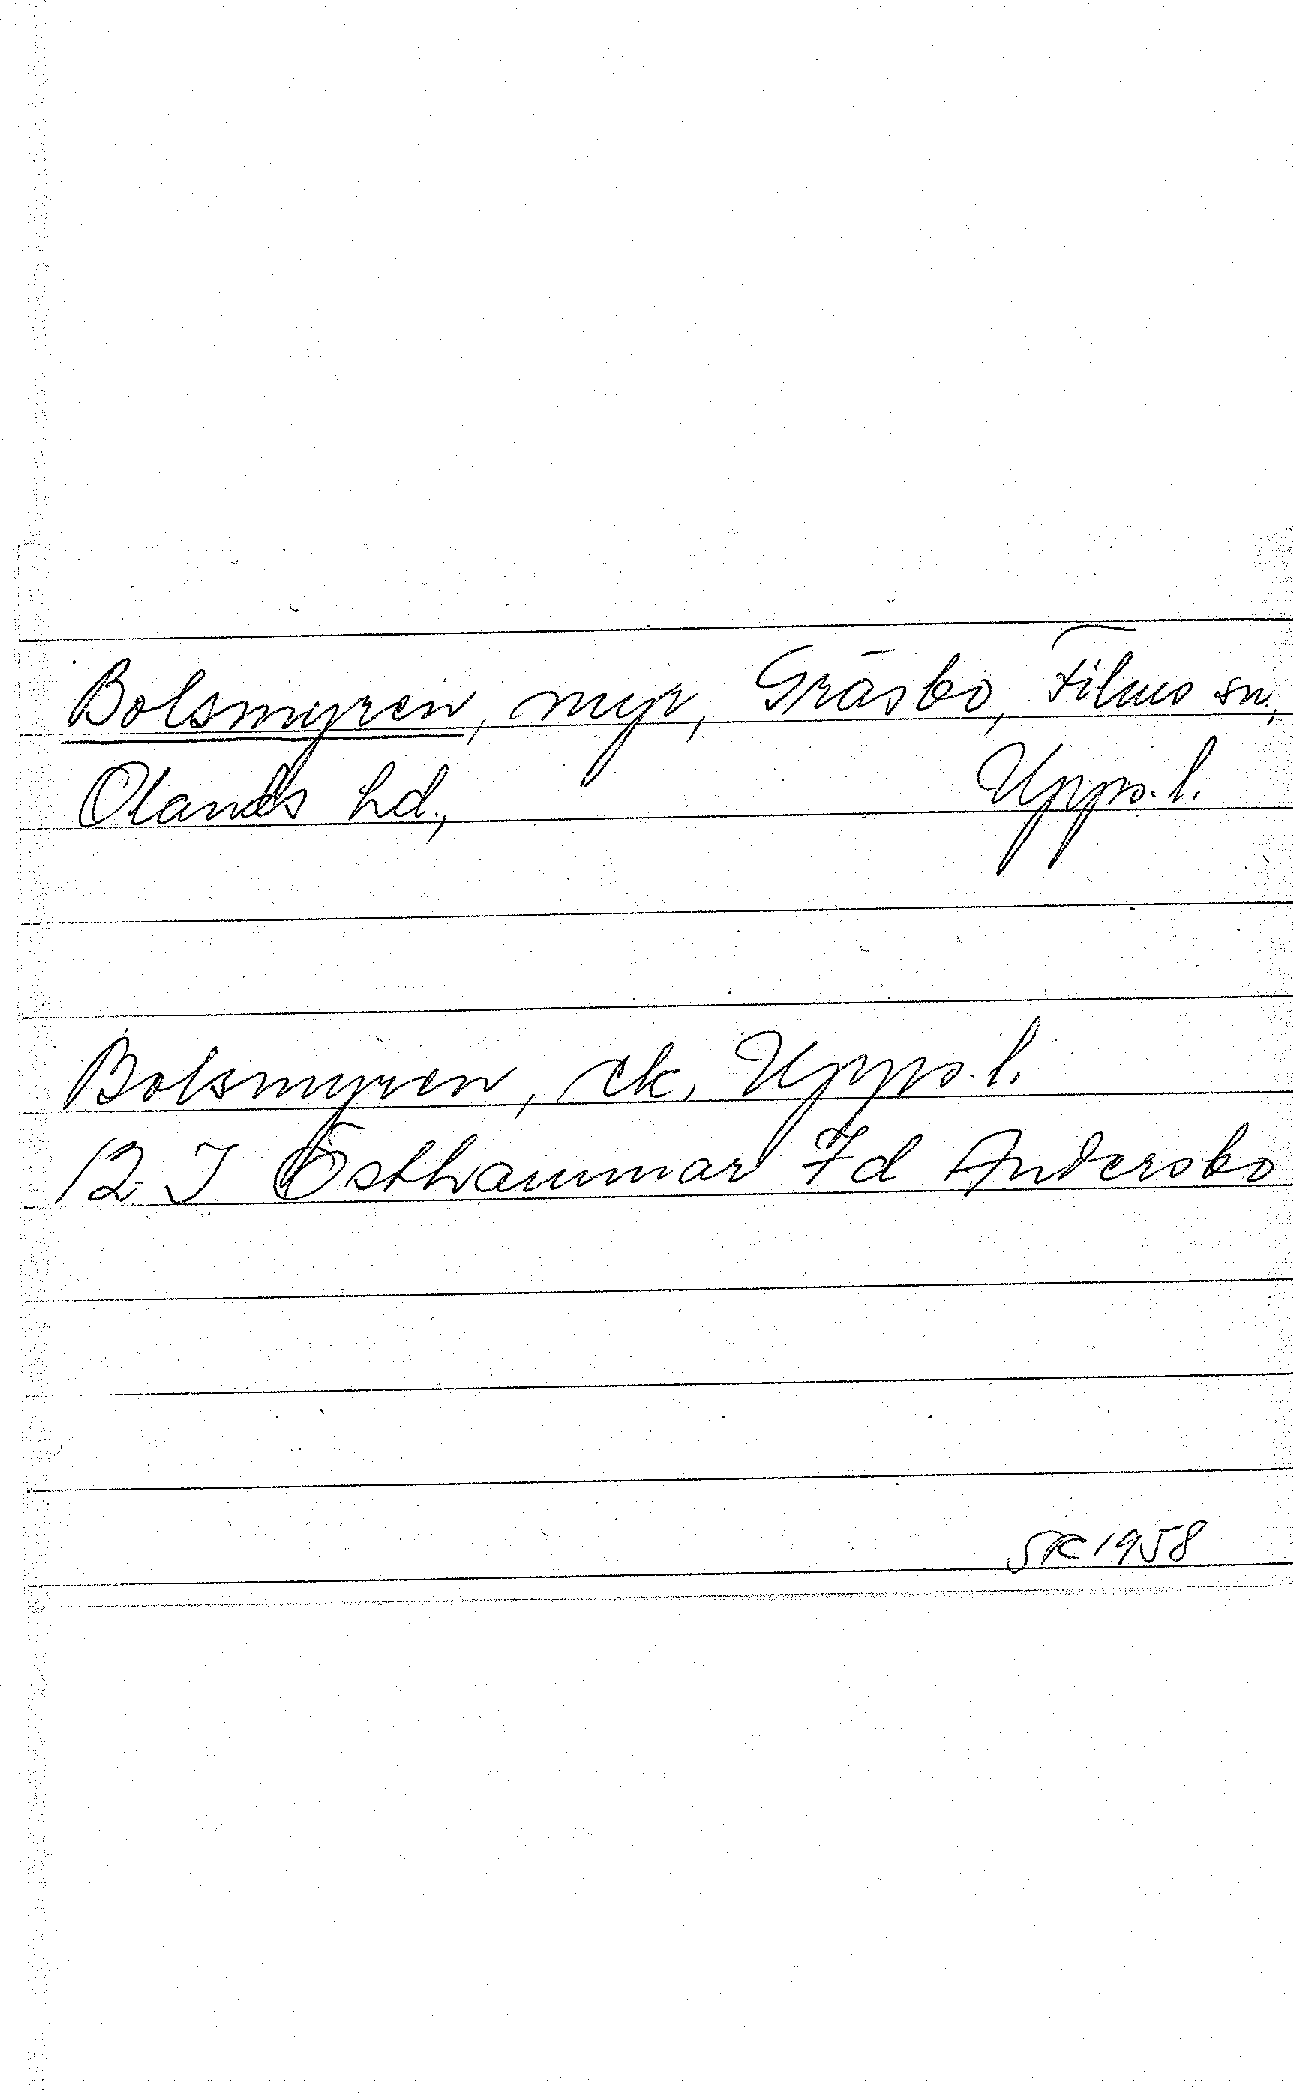 Bolsmyren, myr, Gräsbo, Films sn,
Olands hd., Upps. l.
Bolsmyren, ek. Upps. l.
12 I Östhammar 7d Andersbo
SK 1958